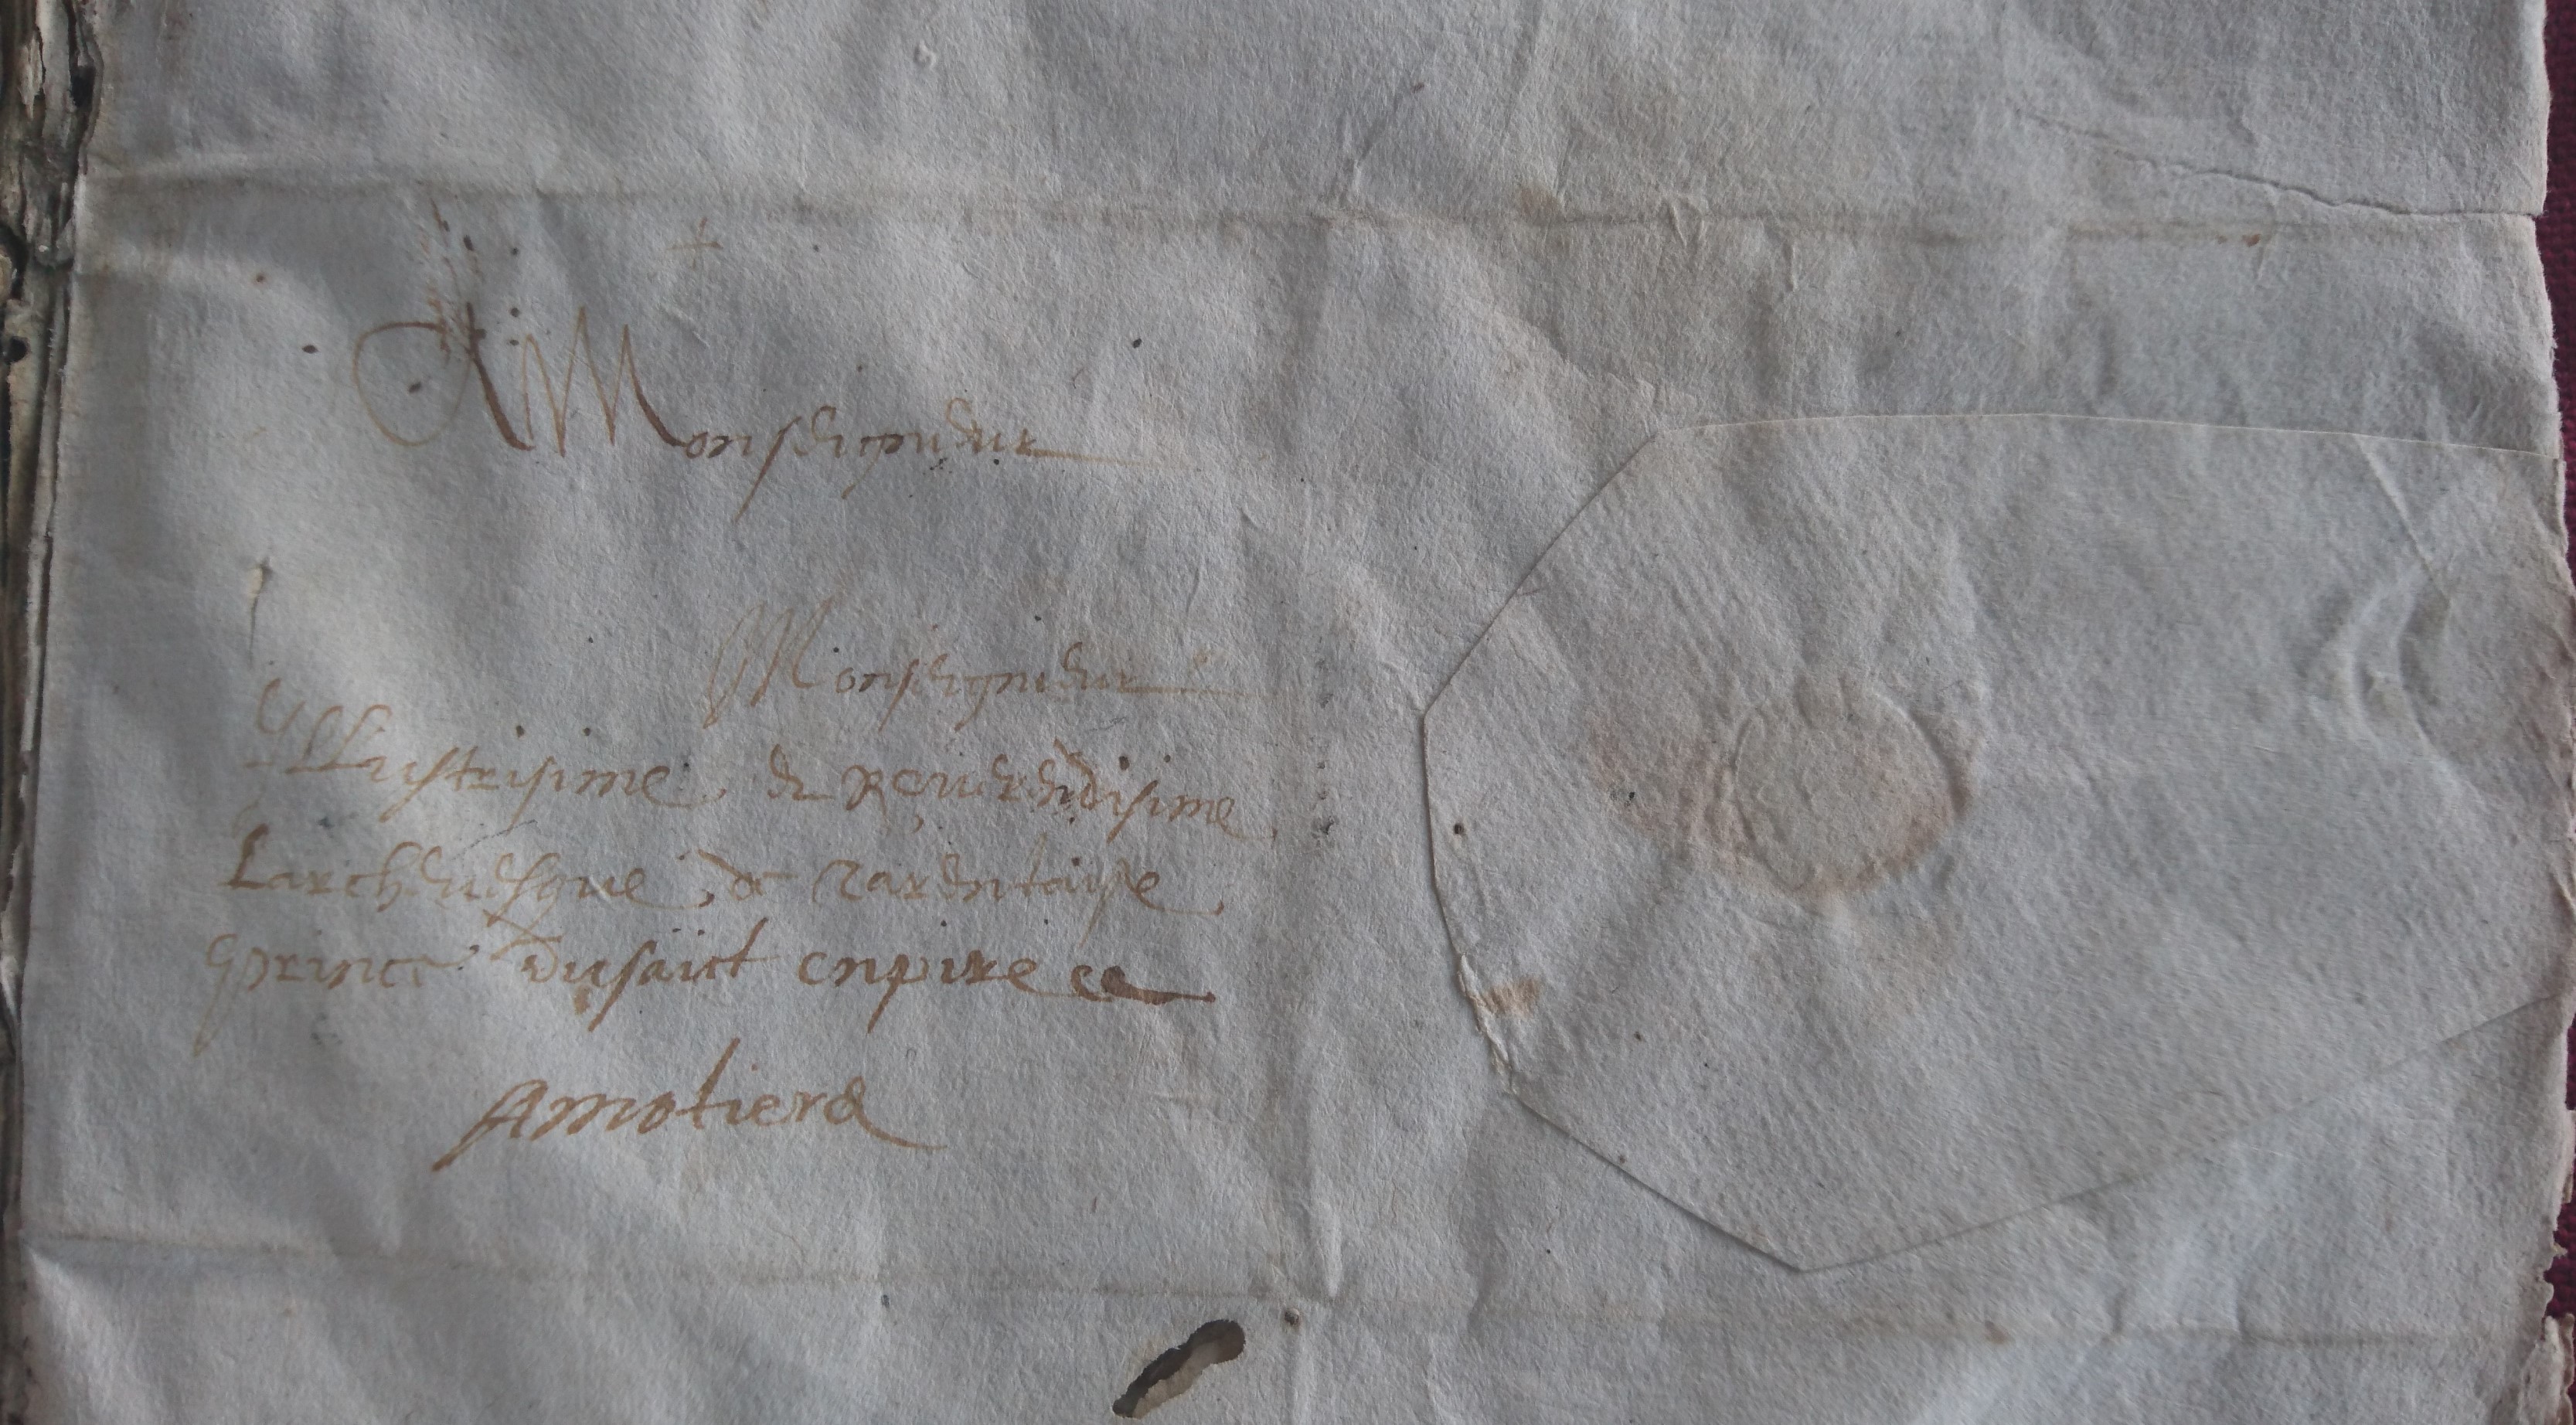 A Monseigneur
Monseigneur
Yllustrisime et Reverendisime
Larchevesque de Tarentaise
prince dusaict enpire
Amotiers